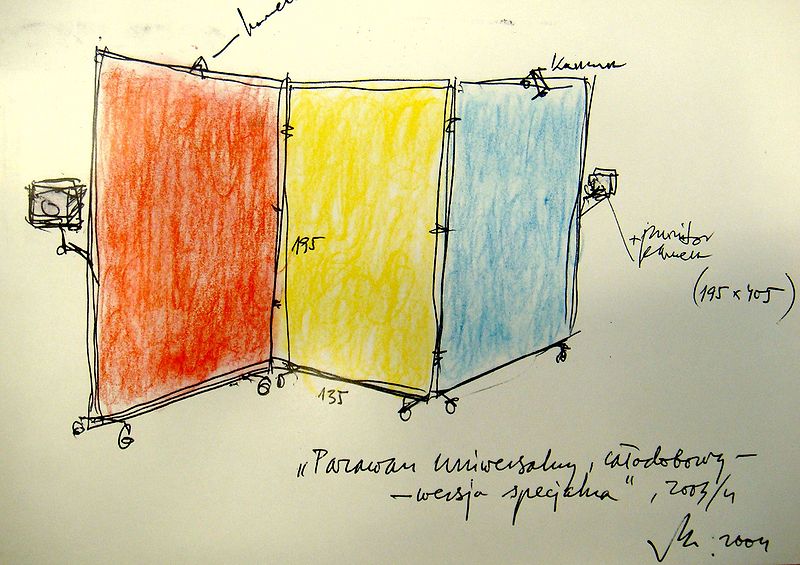 Kamera
195
+ monitor
kamera
(195 x 405)
135
„Parawan uniwersalny, całodobowy –
– wersja specjalna", 2003/4
2004